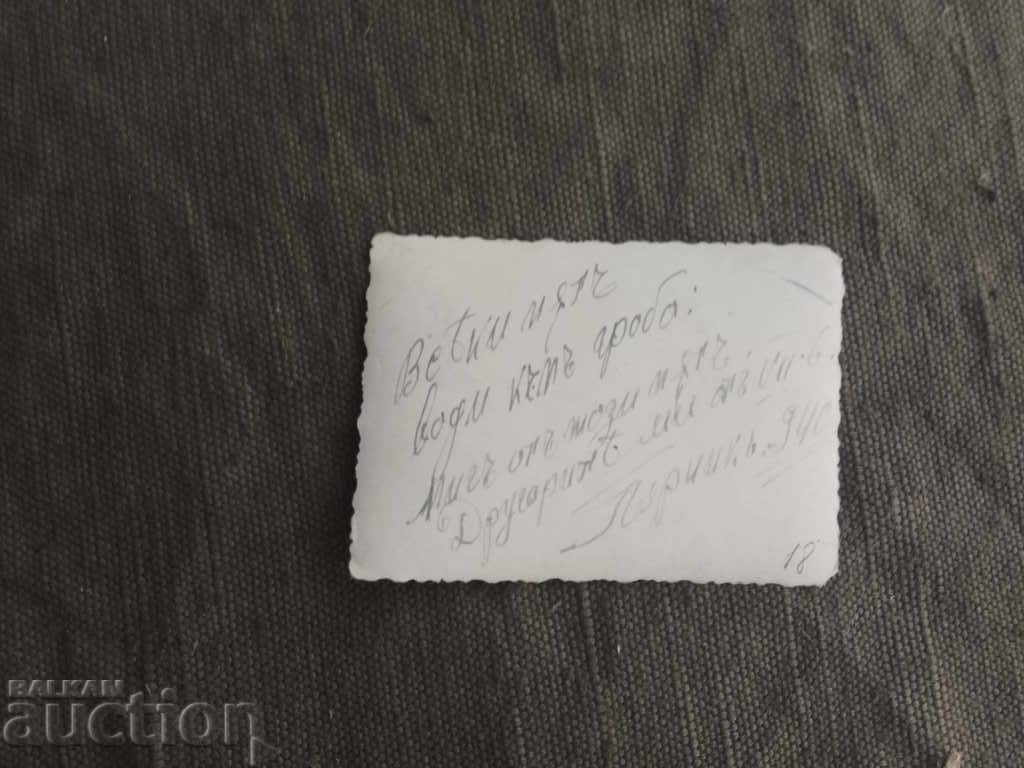 Всѣки пѫть
води къмъ гроба:
Мигъ отъ този пѫть.
Другаритѣ ми отъ VII-б.
Перникъ. 940
18
BALKAN
auction